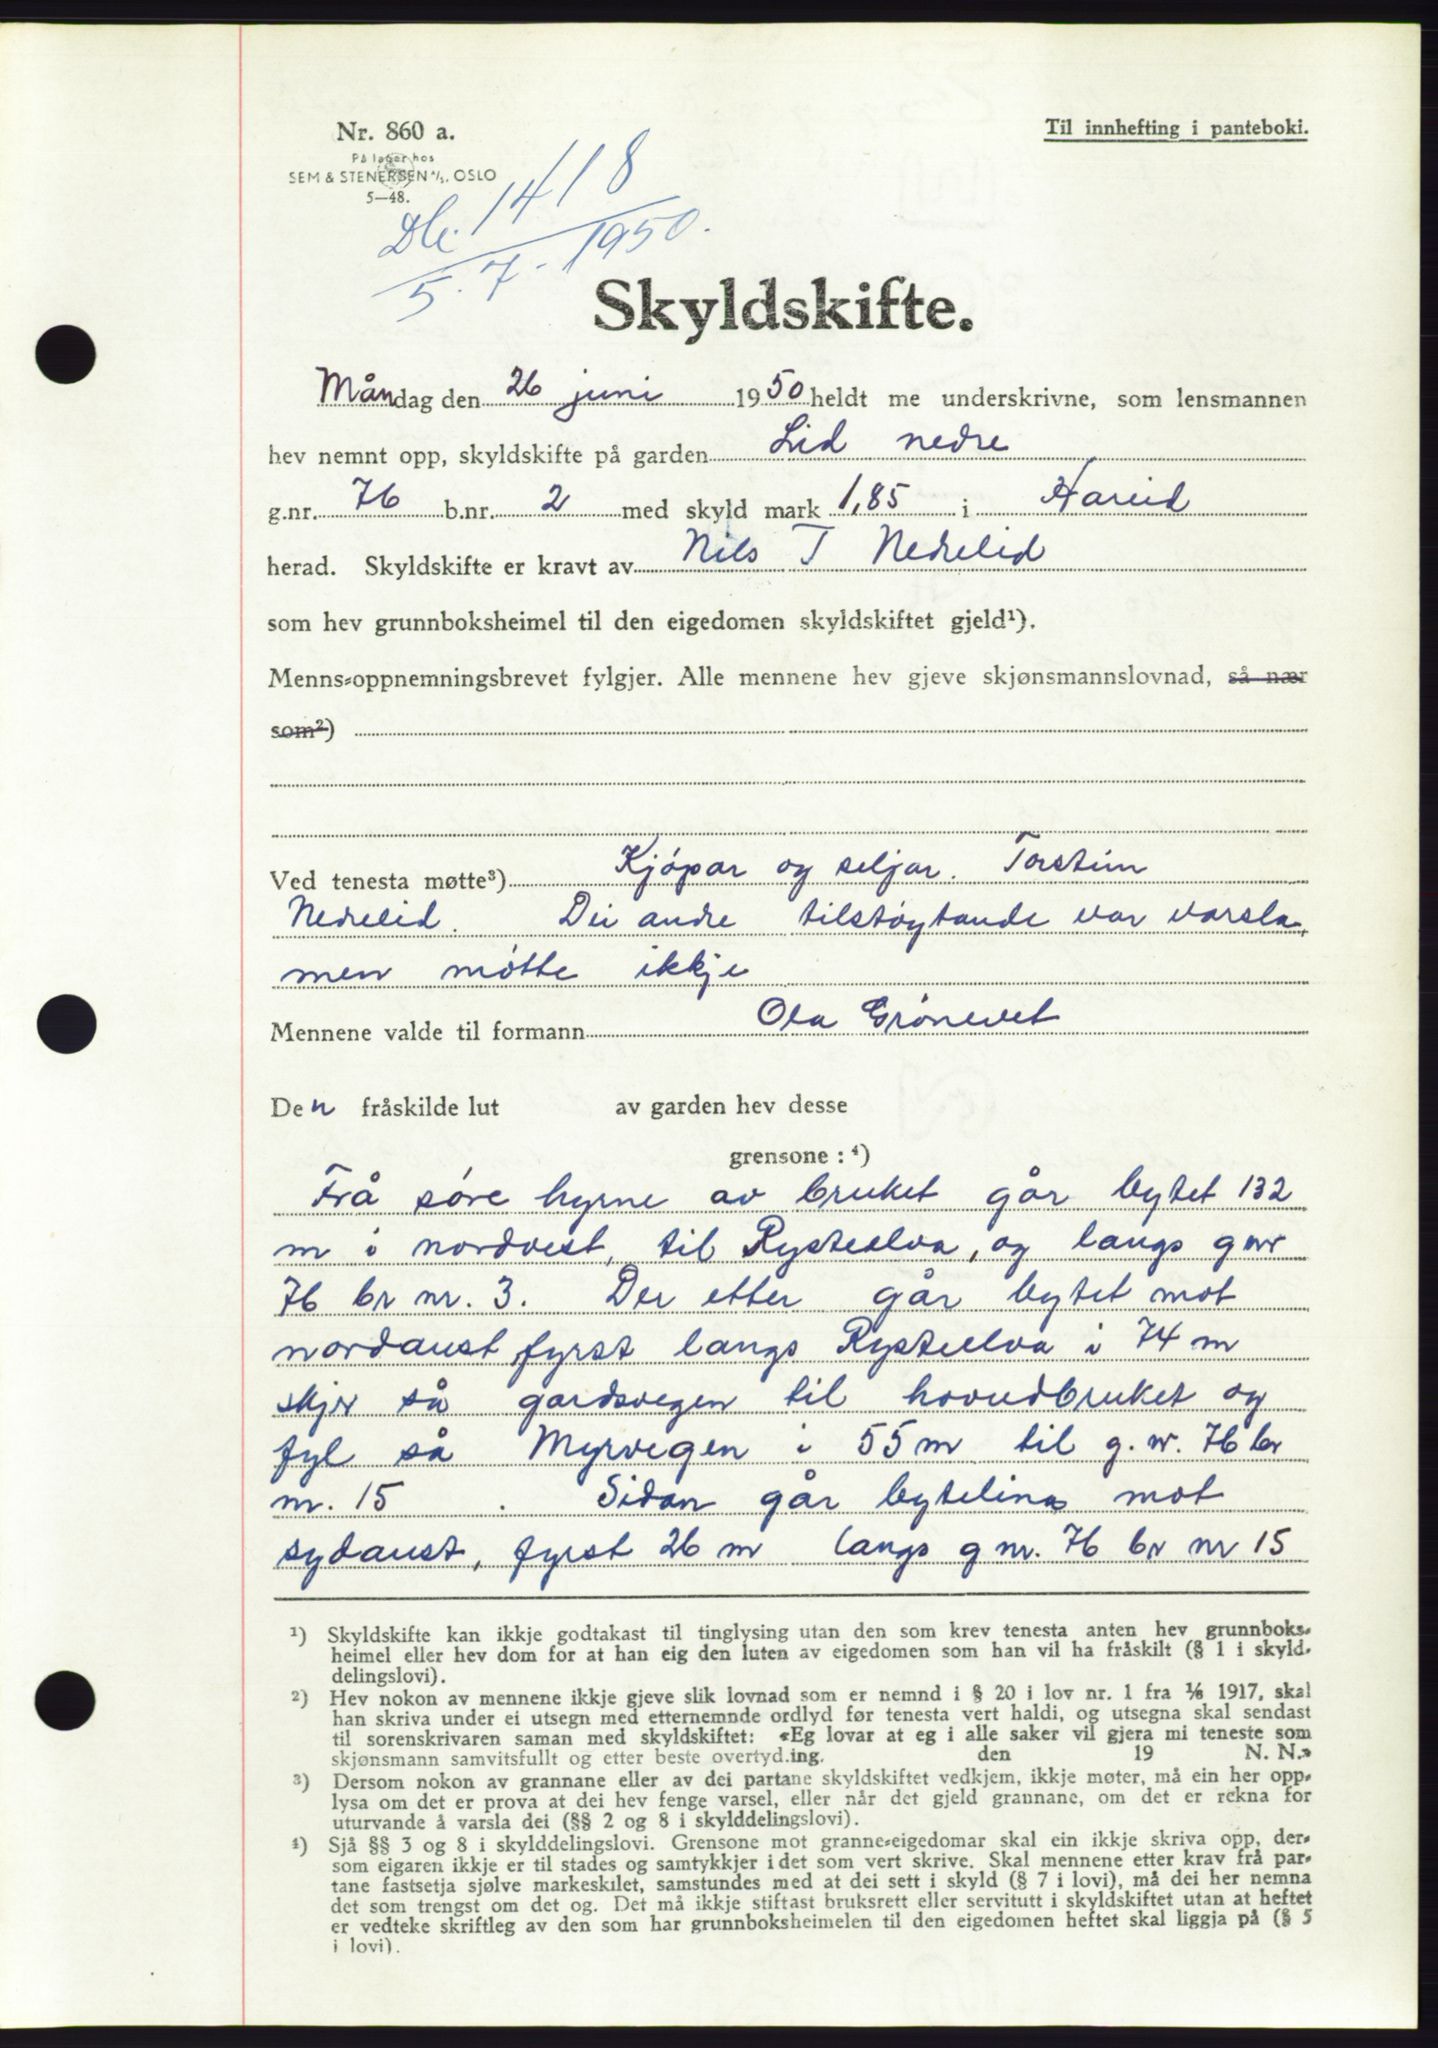 Nr. 860 a.
Til innhefting i panteboki.
På lager hos
SEM & STENERSEN A/S, OSLO
5—48.
Db. 1418
5.7.1950.
Skyldskifte.
Måndag den 26 juni 1950 heldt me underskrivne, som lensmannen
hev nemnt opp, skyldskifte på garden Lid nedre
g.nr. 76 b.nr. 2 med skyld mark 1,85 i Hareid
herad. Skyldskifte er kravt av Nils T Nedrelid
som hev grunnboksheimel til den eigedomen skyldskiftet gjeld¹).
Menns-oppnemningsbrevet fylgjer. Alle mennene hev gjeve skjønsmannslovnad, så nær
som²)
Ved tenesta møtte³) Kjøpar og seljar. Torstein
Nedrelid. Dei andre tilstøytande var varsla,
men møtte ikkje
Mennene valde til formann Ola Grønevet
Den fråskilde lut av garden hev desse
grensone : ⁴)
Frå søre hyrne av bruket går bytet 132
m i nordvest, til Rysteelva, og langs g nr
76 br nr. 3. Der etter går bytet mot
nordaust, fyrst langs Rysteelva i 74 m
skjer så gardsvegen til hovudbruket og
fyl så Myrvegen i 55 m til g. nr. 76 br
nr. 15 . Sidan går bytelina mot
sydaust, fyrst 26 m langs g nr. 76 br nr 15
¹) Skyldskifte kan ikkje godtakast til tinglysing utan den som krev tenesta anten hev grunnboks-
heimel eller hev dom for at han eig den luten av eigedomen som han vil ha fråskilt (§ 1 i skyld-
delingslovi).
²) Hev nokon av mennene ikkje gjeve slik lovnad som er nemnd i § 20 i lov nr. 1 fra 1/6 1917, skal
han skriva under ei utsegn med etternemnde ordlyd før tenesta vert haldi, og utsegna skal sendast
til sorenskrivaren saman med skyldskiftet: «Eg lovar at eg i alle saker vil gjera mi teneste som
skjønsmann samvitsfullt og etter beste overtyd.ing. den 19 N. N.»
³) Dersom nokon av grannane eller av dei partane skyldskiftet vedkjem, ikkje møter, må ein her opp-
lysa om det er prova at dei hev fenge varsel, eller når det gjeld grannane, om det er rekna for
uturvande å varsla dei (§§ 2 og 8 i skylddelingslovi).
⁴) Sjå §§ 3 og 8 i skylddelingslovi. Grensone mot granne-eigedomar skal ein ikkje skriva opp, der-
som eigaren ikkje er til stades og samtykkjer i det som vert skrive. Skal mennene etter krav frå par-
tane fastsetja sjølve markeskilet, samstundes med at dei sett i skyld (§ 7 i lovi), må dei her nemna
det som trengst om det og. Det må ikkje stiftast bruksrett eller servitutt i skyldskiftet utan at heftet
er vedteke skriftleg av den som har grunnboksheimelen til den eigedomen heftet skal liggja på (§ 5
i lovi).